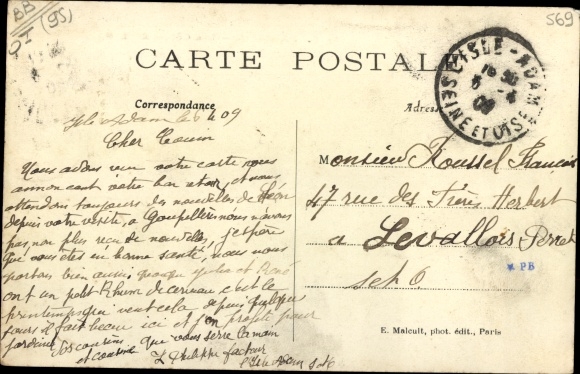 BB
(95)
569
CARTE POSTALE
L'ISLE-ADAM
SEINE ET OISE
Correspondance
Adresse
Isle Adam le 6 4 09
Cher Cousin
Nous avons reçu votre carte nous
annoncant votre bon retour, et nous
attendons toujours des nouvelles de Léon
depuis votre visite, a Goupellière nous n'avons
pas non plus recu de nouvelles, j'espère
que vous êtes en bonne santé, nous nous
portons bien aussi et René
ont un petit Rhume de cerveau c'est le
printemps qui veut cela depuis quelques
jours il fait beau ici et j'en profite pour
jardiner Vos cousins qui vous serre la main
et cousine L Philippe facteur
l'Isle Adam S & O
Monsieur Roussel François
47 rue des Frères Herbert
a Levallois Perret
PB
E. Malcuit, phot. édit., Paris